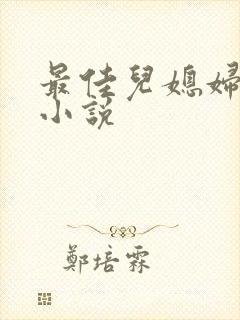 最佳兒媳婦
小説
鄭培霖